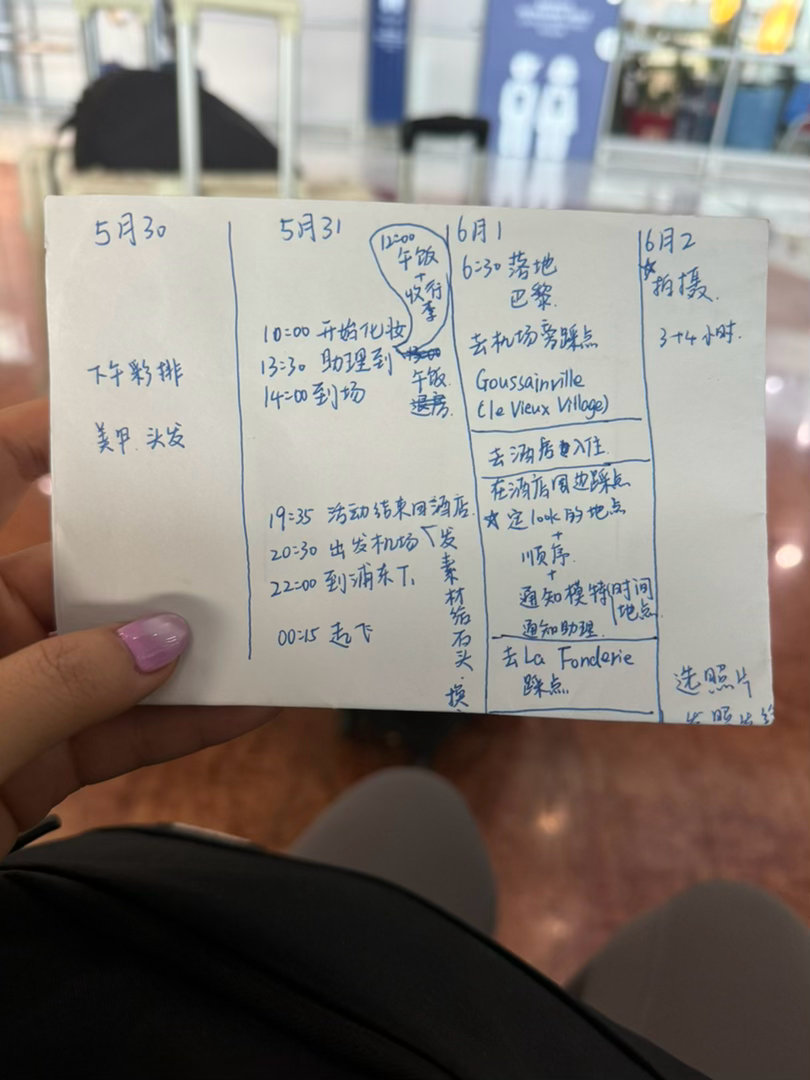 5月30
下午彩排
美甲、头发
5月31
12:00
午饭
+
收行
李
10:00 开始化妆
13:30 助理到
14:00 到场
午饭
19:35 活动结束回酒店
20:30 出发机场
22:00 到浦东T1
00:15 起飞
发
素
材
给
石
头
、
换
6月1
6:30 落地
巴黎
去机场旁踩点
Goussainville
(le Vieux Village)
去酒店入住
在酒店周边踩点
☆定look的地点
+
顺序
+
通知模特(时间
地点
通知助理
去 La Fonderie
踩点
6月2
☆拍摄
3+4小时
选照片